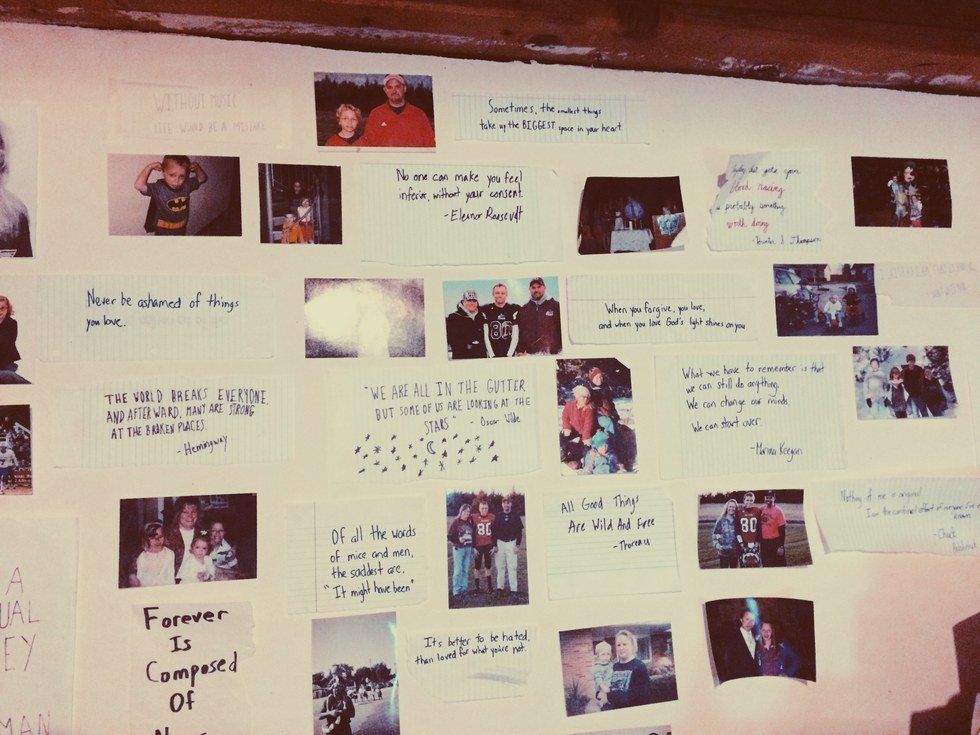 WITHOUT MUSIC
LIFE WOULD BE A MISTAKE
Sometimes, the smallest things
take up the BIGGEST space in your heart.
No one can make you feel
inferior, without your consent.
-Eleanor Roosevelt
good
probably something
worth doing
-Hunter S. Thompson
Never be ashamed of things
you love.
When you forgive, you love,
and when you love God's light shines on you
80
THE WORLD BREAKS EVERYONE,
AND AFTERWARD, MANY ARE STRONG
AT THE BROKEN PLACES.
-Hemingway
"WE ARE ALL IN THE GUTTER
BUT SOME OF US ARE LOOKING AT THE
STARS" - Oscar Wilde
What we have to remember is that
we can still do anything.
We can change our minds.
We can start over.
-Marina Keegan
Of all the words
of mice and men,
the saddest are,
"It might have been"
80
All Good Things
Are Wild And Free
-Thoreau
80
Nothing of me is original
I am the combined effort of everyone I've ever
known.
-Chuck
A
UAL
EY
MAN
Forever
Is
Composed
Of
It's better to be hated,
than loved for what you're not.